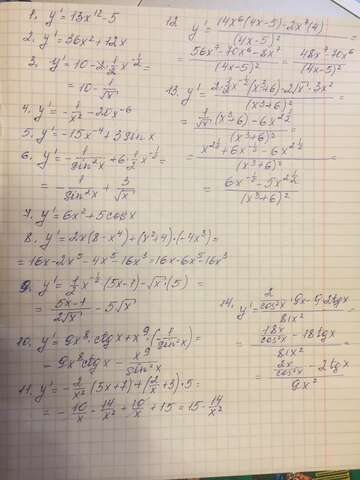 1. y' = 13x¹² - 5
2. y' = 36x² + 12x
3. y' = 10 - 2·½x^(-½) =
= 10 - 1/√x
4. y' = -1/x² - 20x⁻⁶
5. y' = -15x⁻⁴ + 3 sin x
6. y' = -1/sin²x + 6·½x^(-½) =
= -1/sin²x + 3/√x
7. y' = 6x² + 5cos x
8. y' = 2x(8 - x⁴) + (x² + 4)·(-4x³) =
= 16x - 2x⁵ - 4x⁵ - 16x³ = 16x - 6x⁵ - 16x³
9. y' = ½x^(-½)(5x - 1) - √x·(5) =
= (5x - 1)/(2√x) - 5√x
10. y' = 9x⁸·ctg x + x⁹·(-1/sin²x) =
- 9x⁸ctg x - x⁹/sin²x
11. y' = -2/x²(5x + 7) + (2/x + 3)·5 =
= -10/x - 14/x² + 10/x + 15 = 15 - 14/x²
12. y' = (14x⁶(4x - 5) - 2x⁷(4))/(4x - 5)² =
= (56x⁷ - 70x⁶ - 8x⁷)/(4x - 5)² = (48x⁷ - 70x⁶)/(4x - 5)²
13. y' = (2·½x^(-½)(x³ + 6) - 2√x·3x²)/(x³ + 6)² =
= (1/√x·(x³ + 6) - 6x^(2½))/(x³ + 6)² =
= (x^(2½) + 6x^(-½) - 6x^(2½))/(x³ + 6)² =
= (6x^(-½) - 5x^(2½))/(x³ + 6)²
14. y' = (2/cos²x·9x - 9·2tg x)/81x² =
= (18x/cos²x - 18tg x)/81x² =
= (2x/cos²x - 2tg x)/9x²